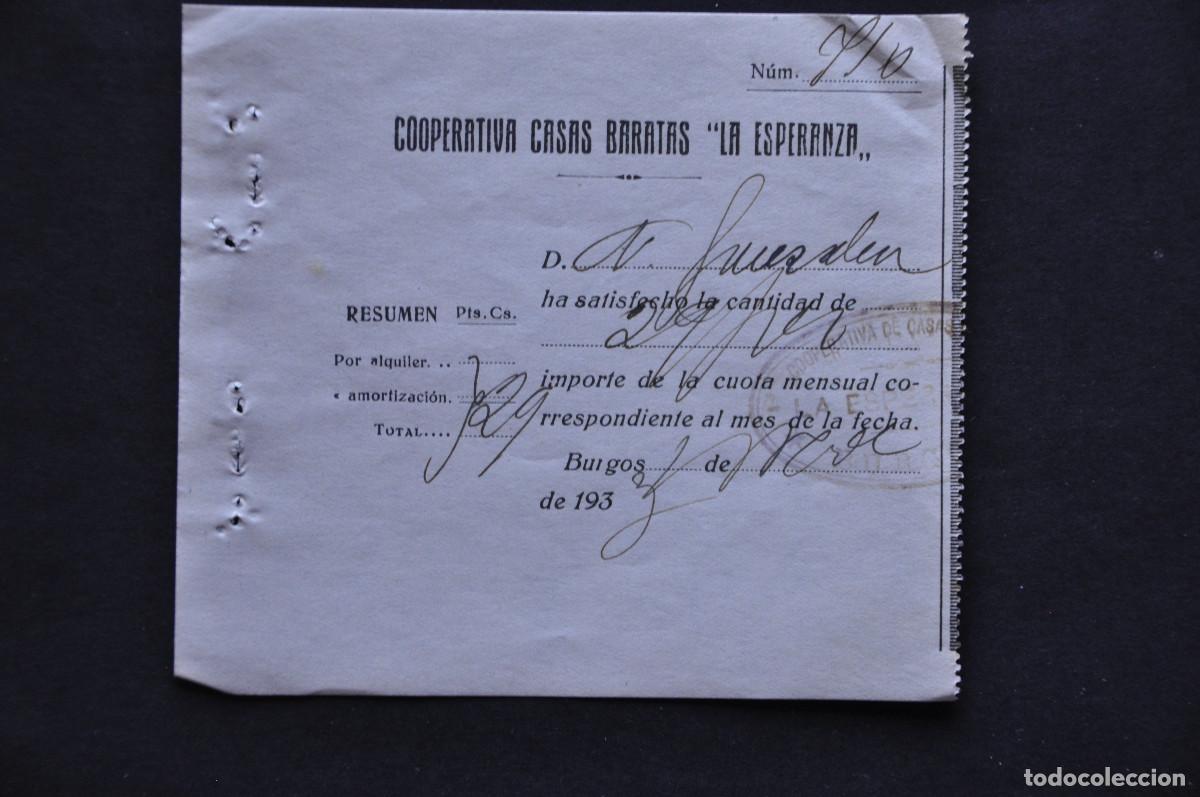 Núm. 710
COOPERATIVA CASAS BARATAS "LA ESPERANZA"
D. N.
ha satisfecho la cantidad de
29
RESUMEN Pts. Cs.
Por alquiler. ..
« amortización.
TOTAL.... 29
importe de la cuota mensual co-
rrespondiente al mes de la fecha.
Burgos de
de 193
COOPERATIVA DE CASAS
LA ESPE
todocoleccion